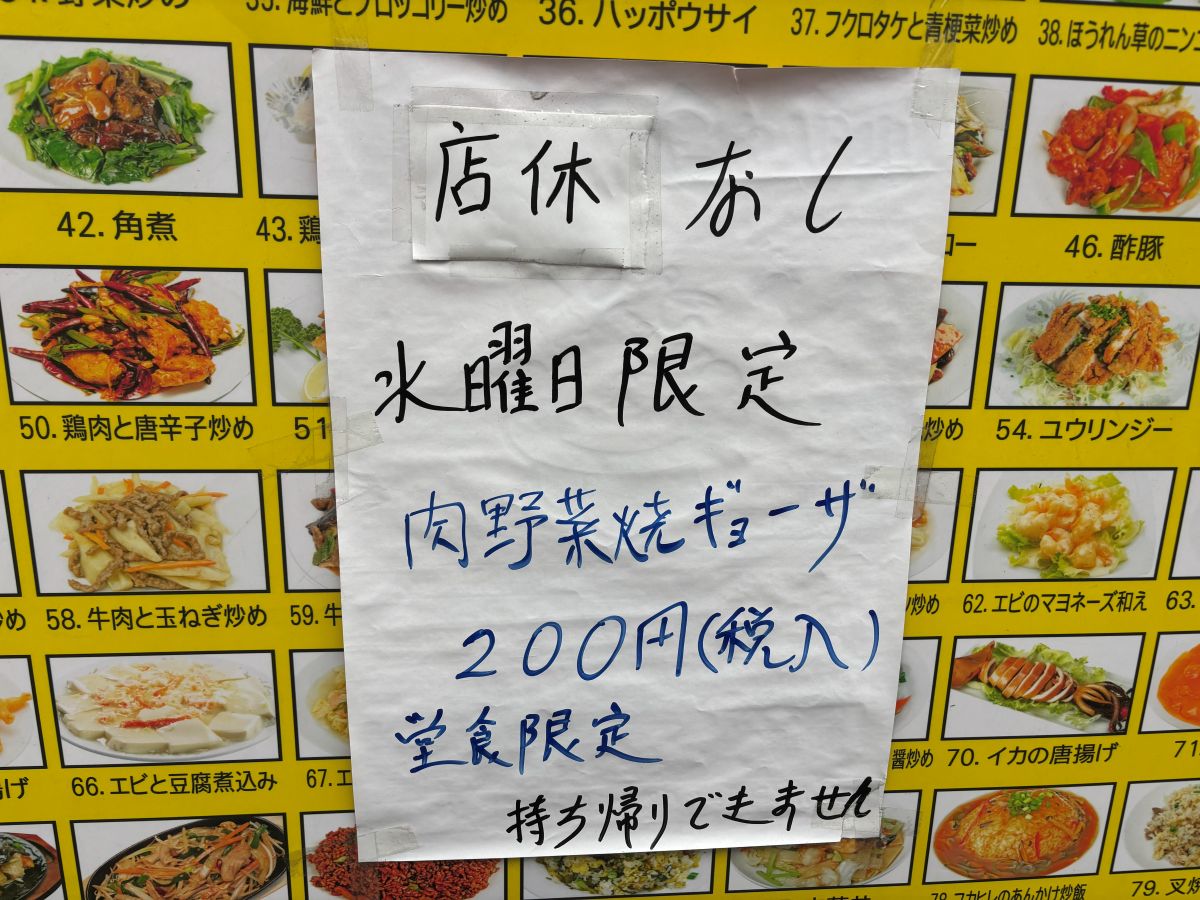 野菜炒め
35.海鮮とブロッコリー炒め
36.ハッポウサイ
37.フクロタケと青梗菜炒め
38.ほうれん草のニン
店休 なし
水曜日限定
肉野菜焼ギョーザ
200円(税入)
堂食限定
持ち帰りできません
42.角煮
43.鶏
ロー
46.酢豚
50.鶏肉と唐辛子炒め
51
炒め
54.ユウリンジー
め
58.牛肉と玉ねぎ炒め
59.牛
炒め
62.エビのマヨネーズ和え
63.
げ
66.エビと豆腐煮込み
67.エ
醤炒め
70.イカの唐揚げ
71
78.フカヒレのあんかけ炒飯
79.叉焼